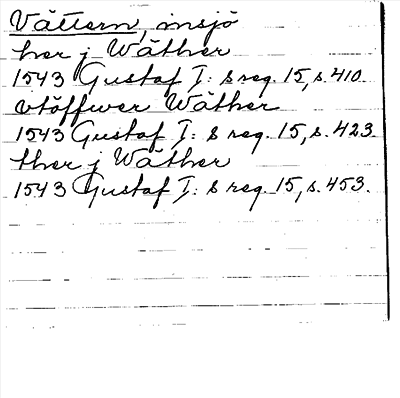 Vättern, insjö
her j Wäther
1543 Gustaf I: s reg. 15, s. 410.
vtöffwer Wäther
1543 Gustaf I: s reg. 15, s. 423
ther j Wäther
1543 Gustaf I: s reg. 15, s. 453.